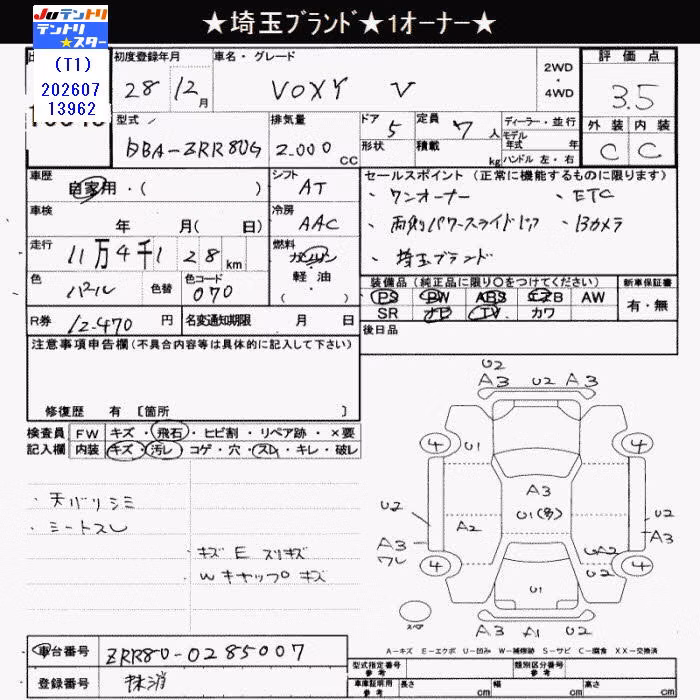 ★埼玉ブランド★1オーナー★
JUテントリ
テントリ
★スター
(T1)
202607
13962
初度登録年月
28 12月
車名・グレード
VOXY V
2WD
・
4WD
評価点
3.5
外装 内装
C C
型式
DBA-ZRR80G
排気量
2.000 CC
ドア 5
形状
定員 7 人
積載 kg
ディーラー・並行
モデル
年式 年
ハンドル 左・右
車歴
自家用・( )
シフト
AT
セールスポイント (正常に機能するものに限ります)
・ワンオーナー ・ETC
・両側パワースライドドア ・Bカメラ
・埼玉ブランド
車検
年 月( 日)
冷房
AAC
走行
11万4千128 km
燃料
ガソリン
軽油
・
( )
色
パール
色替
色コード
070
装備品 (純正品に限り○をつけてください)
PS PW ABS エアB AW
SR ナビ TV カワ
新車保証書
有・無
R券
12-470 円
名変通知期限 月 日
後日品
注意事項申告欄(不具合内容等は具体的に記入して下さい)
修復歴 有 [箇所 ]
検査員
記入欄
FW キズ・飛石・ヒビ割・リペア跡・×要
内装 キズ・汚レ・コゲ・穴・スレ・キレ・破レ
・天バリシミ
・シートスレ
・キズ E スリキズ
Wキャップ キズ
U2
A3 U2 A3
4 U1 4
A3
U1(多)
U2 A2 U2
A3 A3
ワレ UA2
4 U2 4
U1
スペア
A3 A1 U2
A-キズ E-エクボ U-凹み W-補修跡 S-サビ C-腐食 XX-交換済
車台番号
ZRR80-0285007
登録番号
抹消
型式指定番号
参考
類別区分番号
参考
車庫証明用
参考
長さ cm
幅 cm
高さ cm